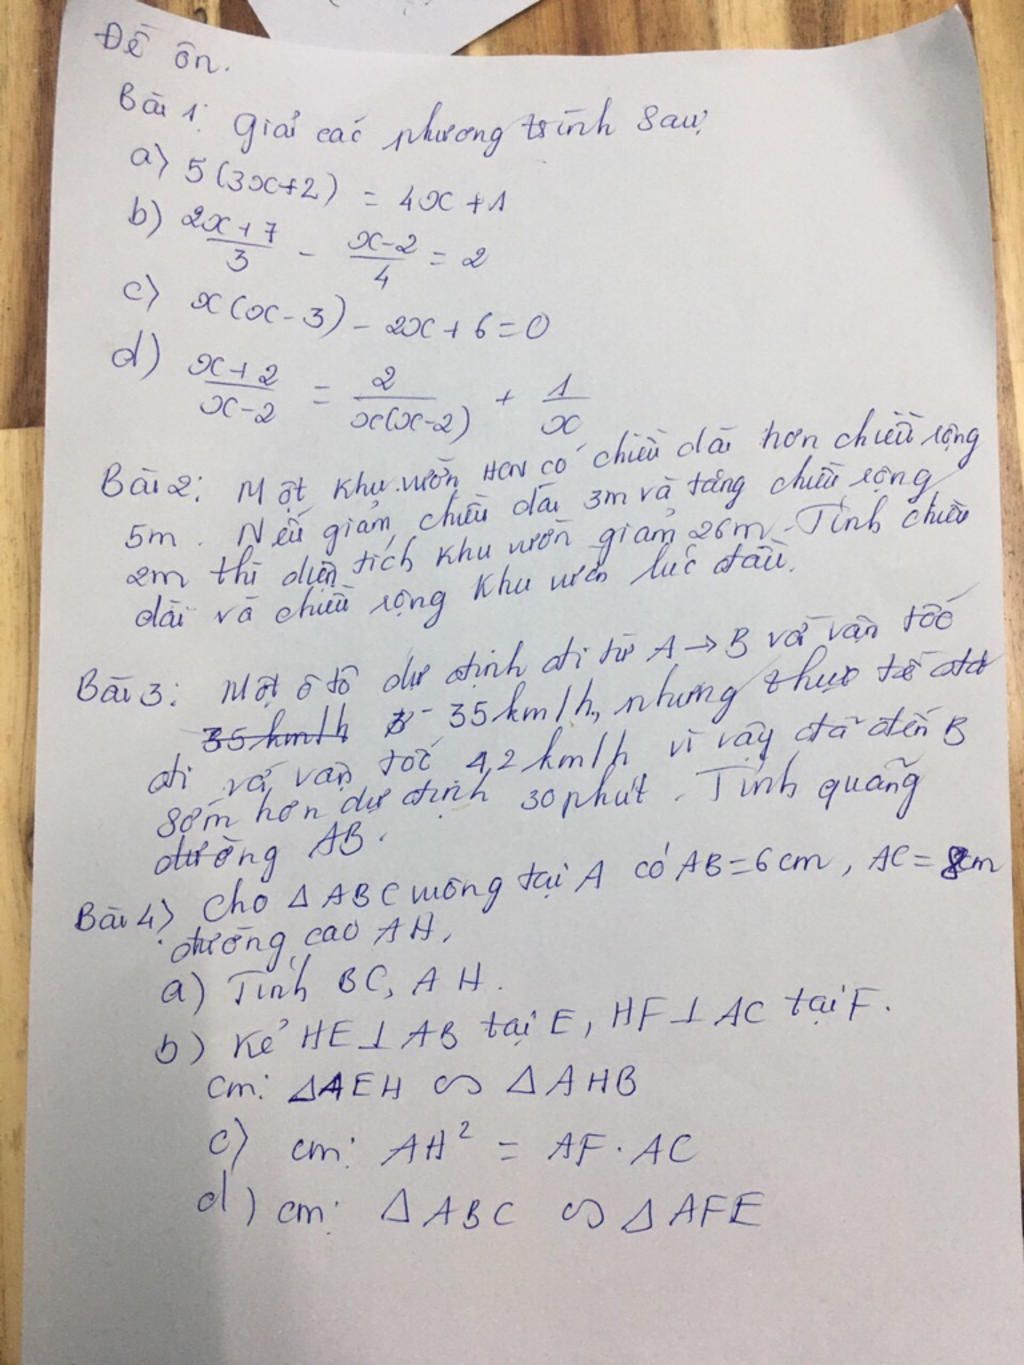 Đề ôn.
Bài 1: Giải các phương trình sau:
a) 5(3x+2) = 4x+1
b) \frac{2x+7}{3} - \frac{x-2}{4} = 2
c) x(x-3) - 2x + 6 = 0
d) \frac{x+2}{x-2} = \frac{2}{x(x-2)} + \frac{1}{x}
Bài 2: Một khu vườn HCN có chiều dài hơn chiều rộng
5m. Nếu giảm chiều dài 3m và tăng chiều rộng
2m thì diện tích khu vườn giảm 26m. Tính chiều
dài và chiều rộng khu vườn lúc đầu.
Bài 3: Một ô tô dự định đi từ A → B với vận tốc
35km/h 35km/h, nhưng thực tế đã
đi với vận tốc 42km/h vì vậy đã đến B
sớm hơn dự định 30phút. Tính quãng
đường AB.
Bài 4) Cho Δ ABC vuông tại A có AB=6cm, AC=8cm
đường cao AH.
a) Tính BC, AH.
b) Kẻ HE⊥AB tại E, HF⊥AC tại F.
cm: ΔAEH ∽ ΔAHB
c) cm: AH² = AF.AC
d) cm: ΔABC ∽ ΔAFE